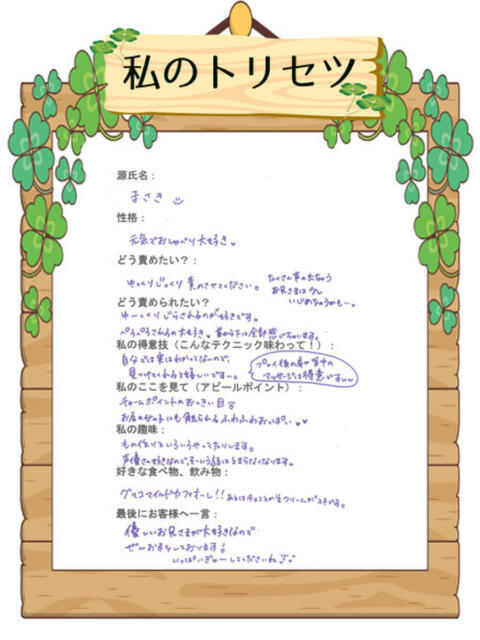 私のトリセツ
源氏名：
まさき
性格：
元気でおしゃべり大好き
どう責めたい？
ゆっくりじっくり責めさせてください。
たくさん声の出ちゃう
お兄さまは少し
いじめちゃうかも…
どう責められたい？
ゆーっくりじらされるのが好きです。
ぺろぺろされるの大好き 首から下は全部感じちゃいます。
私の得意技（こんなテクニック味わって！）：
自分では実はわかってないので、
見つけてくれると嬉しいですー。
プレイ後の肩や背中の
マッサージは得意ですしー
私のここを見て（アピールポイント）：
チャームポイントのおっきい目
お店の女の子にも触られるふわふわおっぱい
私の趣味：
もの作りといろいろやってたりします。
声優さん好きなので、そーいう話はとまらなくなります。
好きな食べ物、飲み物：
グリコマイルドカフェオーレ！！あとはチョコとか生クリームがスキです。
最後にお客様へ一言：
優しいお兄さまが大好きなので
ぜひお待ちしております！
いっぱいぎゅーしてくださいね